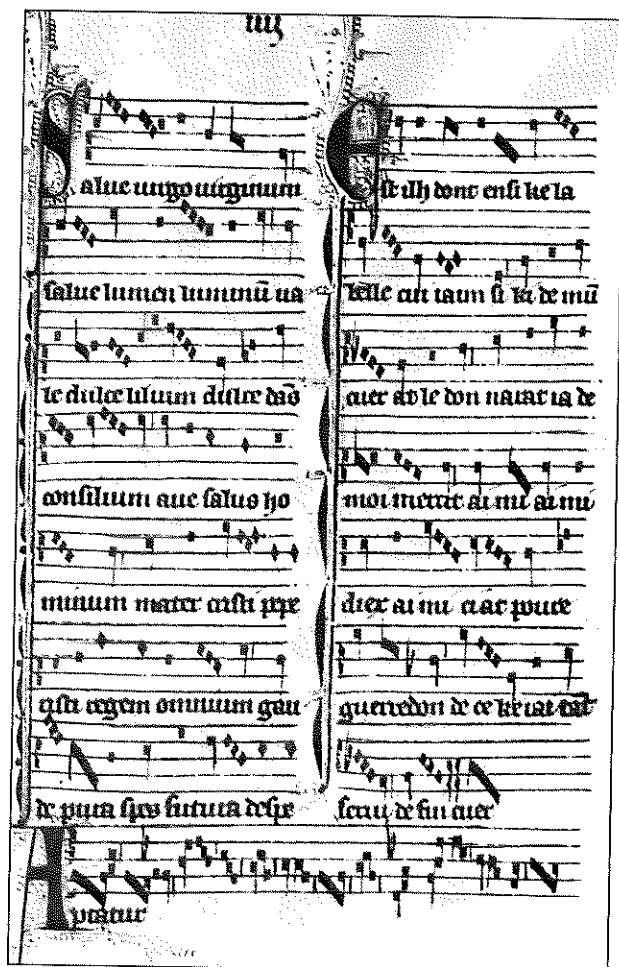 iiij
Salue uirgo uirginum
salue lumen luminū ua
le dulce lilium dulce dāo
consilium aue salus ho
minum mater cristi pepe
risti regem omnium gau
de pura spes futura despe
Est ilh donc ensi ke la
belle cui iaim si ki de mū
cuer at le don naurat ia de
moi mercit ai mi ai mi
diex ai mi ci at poure
guerredon de ce ke iai tāt
serui de fin cuer
Aptatur